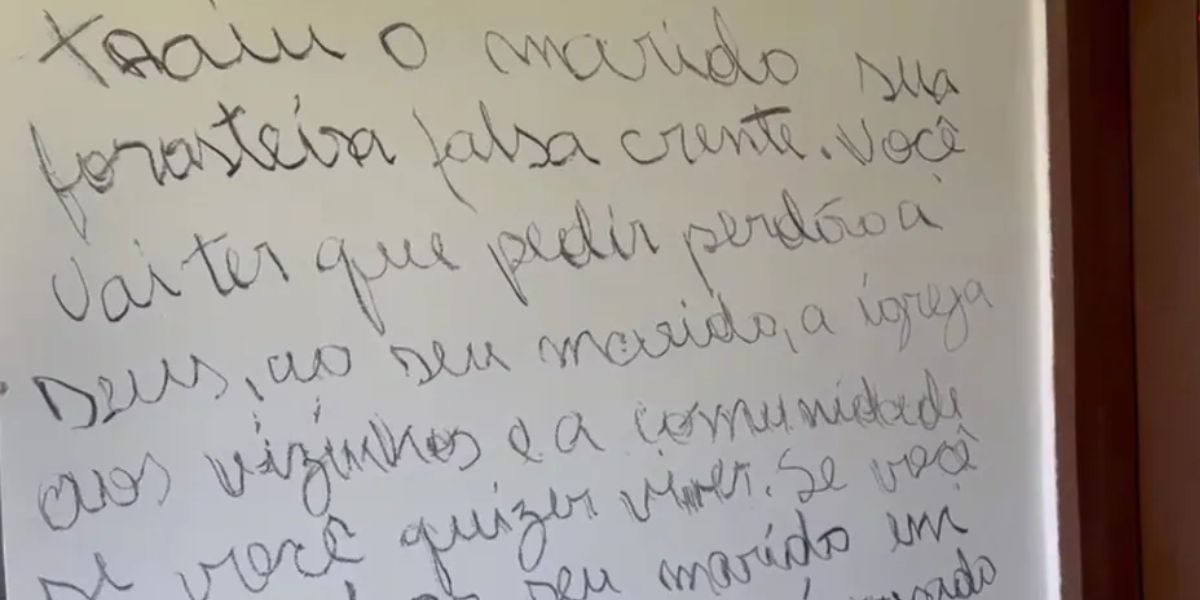 traiu o marido sua
forasteira falsa crente. Você
vai ter que pedir perdão a
Deus, ao seu marido, a igreja
aos vizinhos e a comunidade
se você quizer viver. Se você
seu marido em